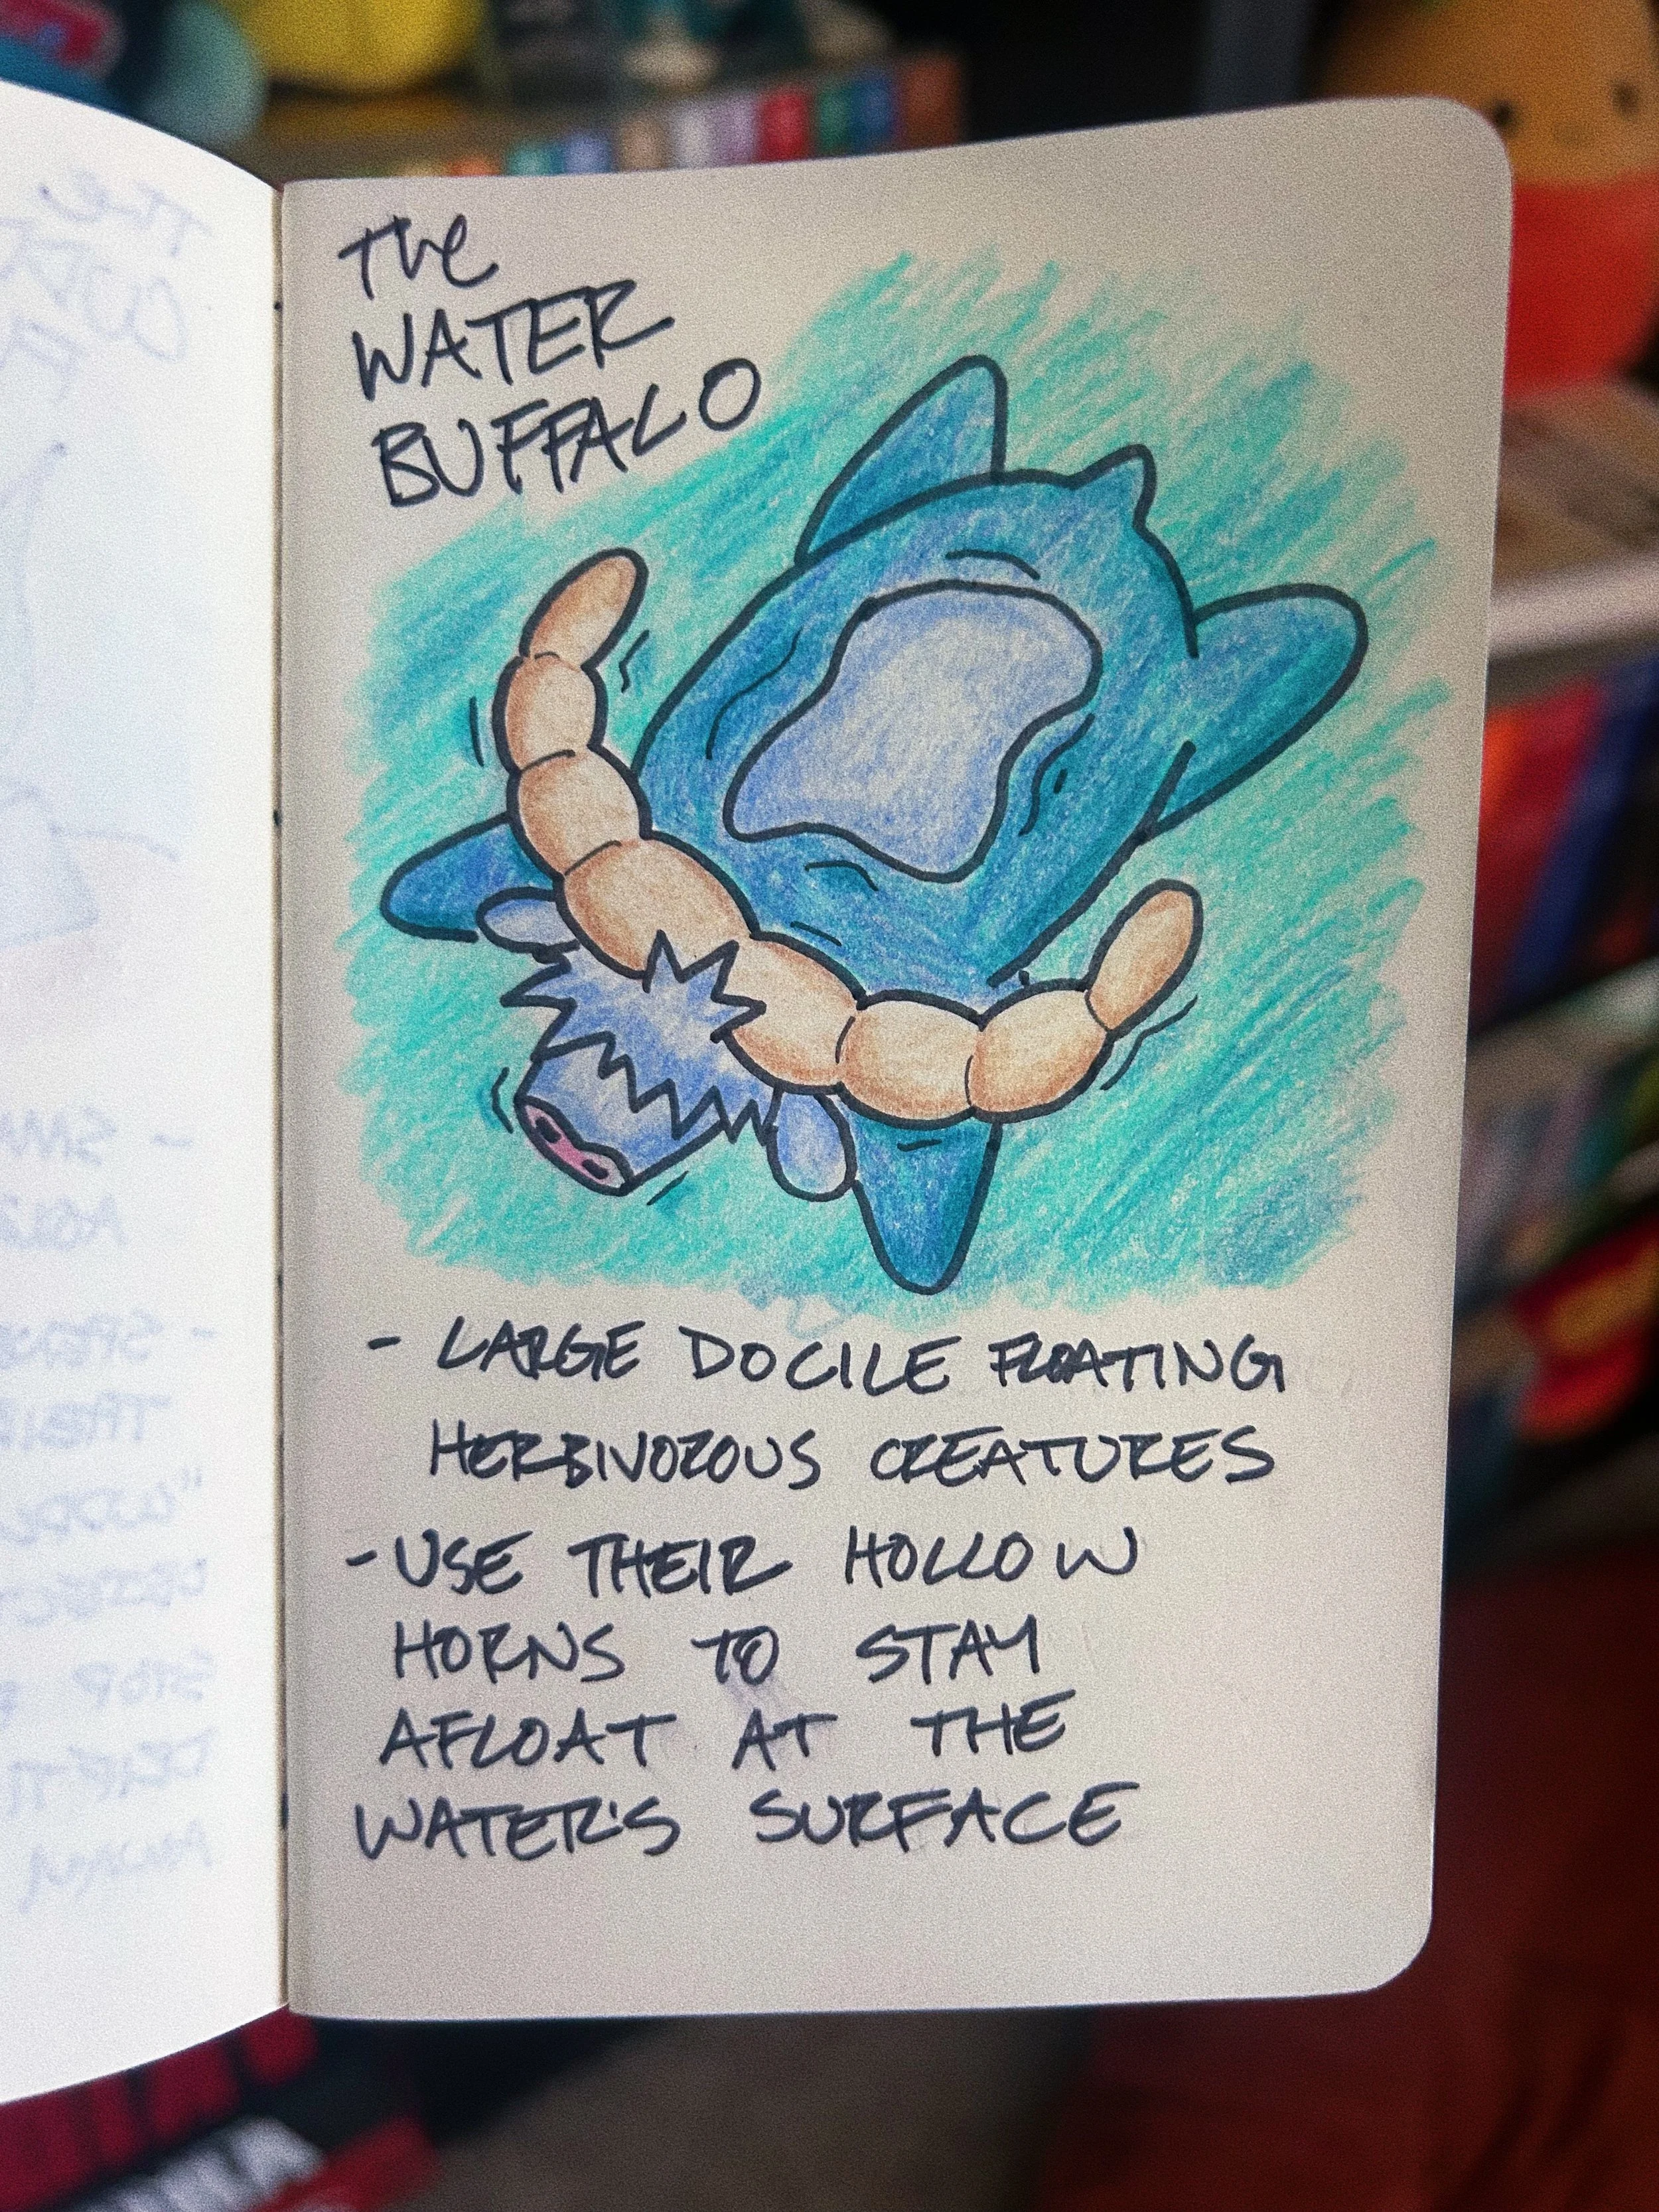 The
WATER
BUFFALO
- LARGE DOCILE FLOATING
HERBIVOROUS CREATURES
- USE THEIR HOLLOW
HORNS TO STAY
AFLOAT AT THE
WATER'S SURFACE